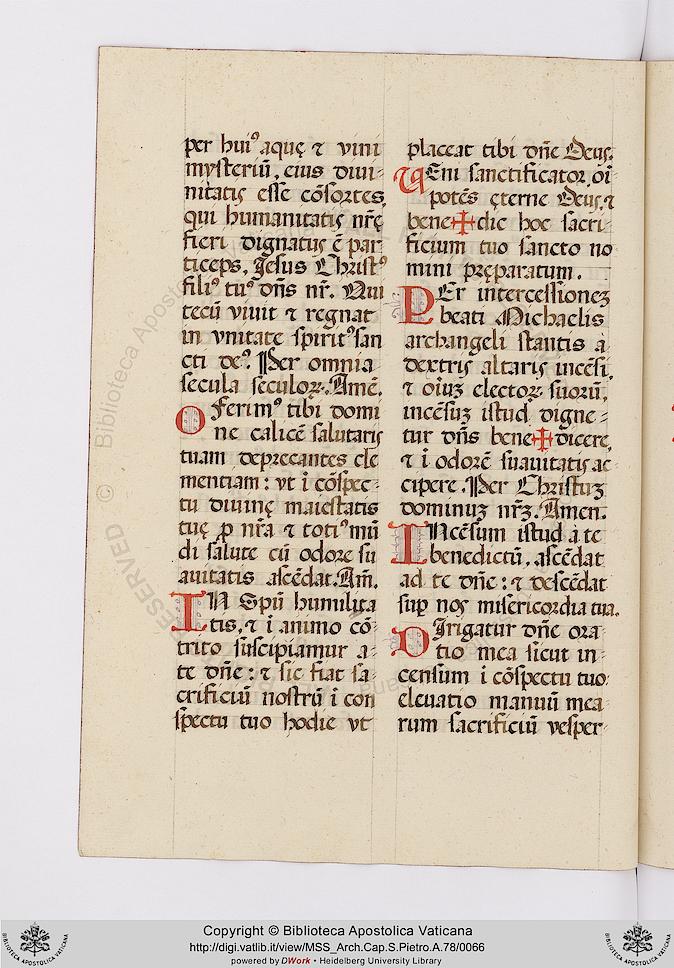 per huiꝰ aquę ⁊ vini
mysteriū, eius diui-
nitatis esse cōsortes,
qui humanitatis nrę̄
fieri dignatus ē par
ticeps, Jesus Christꝰ
filiꝰ tuꝰ dn̄s nr̄. Qui
tecū viuit ⁊ regnat
in vnitate spiritꝰ san
cti deꝰ. Per omnia
secula seculoꝝ. Amē.
OFerimꝰ tibi domi
ne calicē salutaris
tuam deprecantes cle
mentiam: vt i cōspec-
tu diuinę maiestatis
tuę ꝓ nr̄a ⁊ totiꝰ mū
di salute cū odore su
auitatis ascēdat. Am̄.
IN Spū humilita
tis, ⁊ ī animo cō-
trito suscipiamur a-
te dn̄e: ⁊ sic fiat sa-
crificiū nostrū ī con
spectu tuo hodie vt
placeat tibi dn̄e Deus.
VEni sanctificator oī
potēs ęterne Deus, ⁊
bene✠dic hoc sacri-
ficium tuo sancto no
mini pręparatum.
PEr intercessioneꝫ
beati Michaelis
archangeli stantis a
dextris altaris incēsi,
⁊ oīuꝫ electoꝝ suorū,
incēsuꝫ istud digne-
tur dn̄s bene✠dicere,
⁊ ī odorē suauitatis ac
cipere. Per Christuꝫ
dominuꝫ nr̄ꝫ. Amen.
INcēsum istud a te
benedictū, ascēdat
ad te dn̄e: ⁊ descēdat
suꝑ nos misericordia tua.
DIrigatur dn̄e ora
tio mea sicut in-
censum ī cōspectu tuo:
eleuatio manuū mea
rum sacrificiū vesper-
RESERVED © Biblioteca Apostolica Vaticana
Copyright © Biblioteca Apostolica Vaticana
http://digi.vatlib.it/view/MSS_Arch.Cap.S.Pietro.A.78/0066
powered by DWork • Heidelberg University Library
BIBLIOTECA APOSTOLICA VATICANA
BIBLIOTECA APOSTOLICA VATICANA